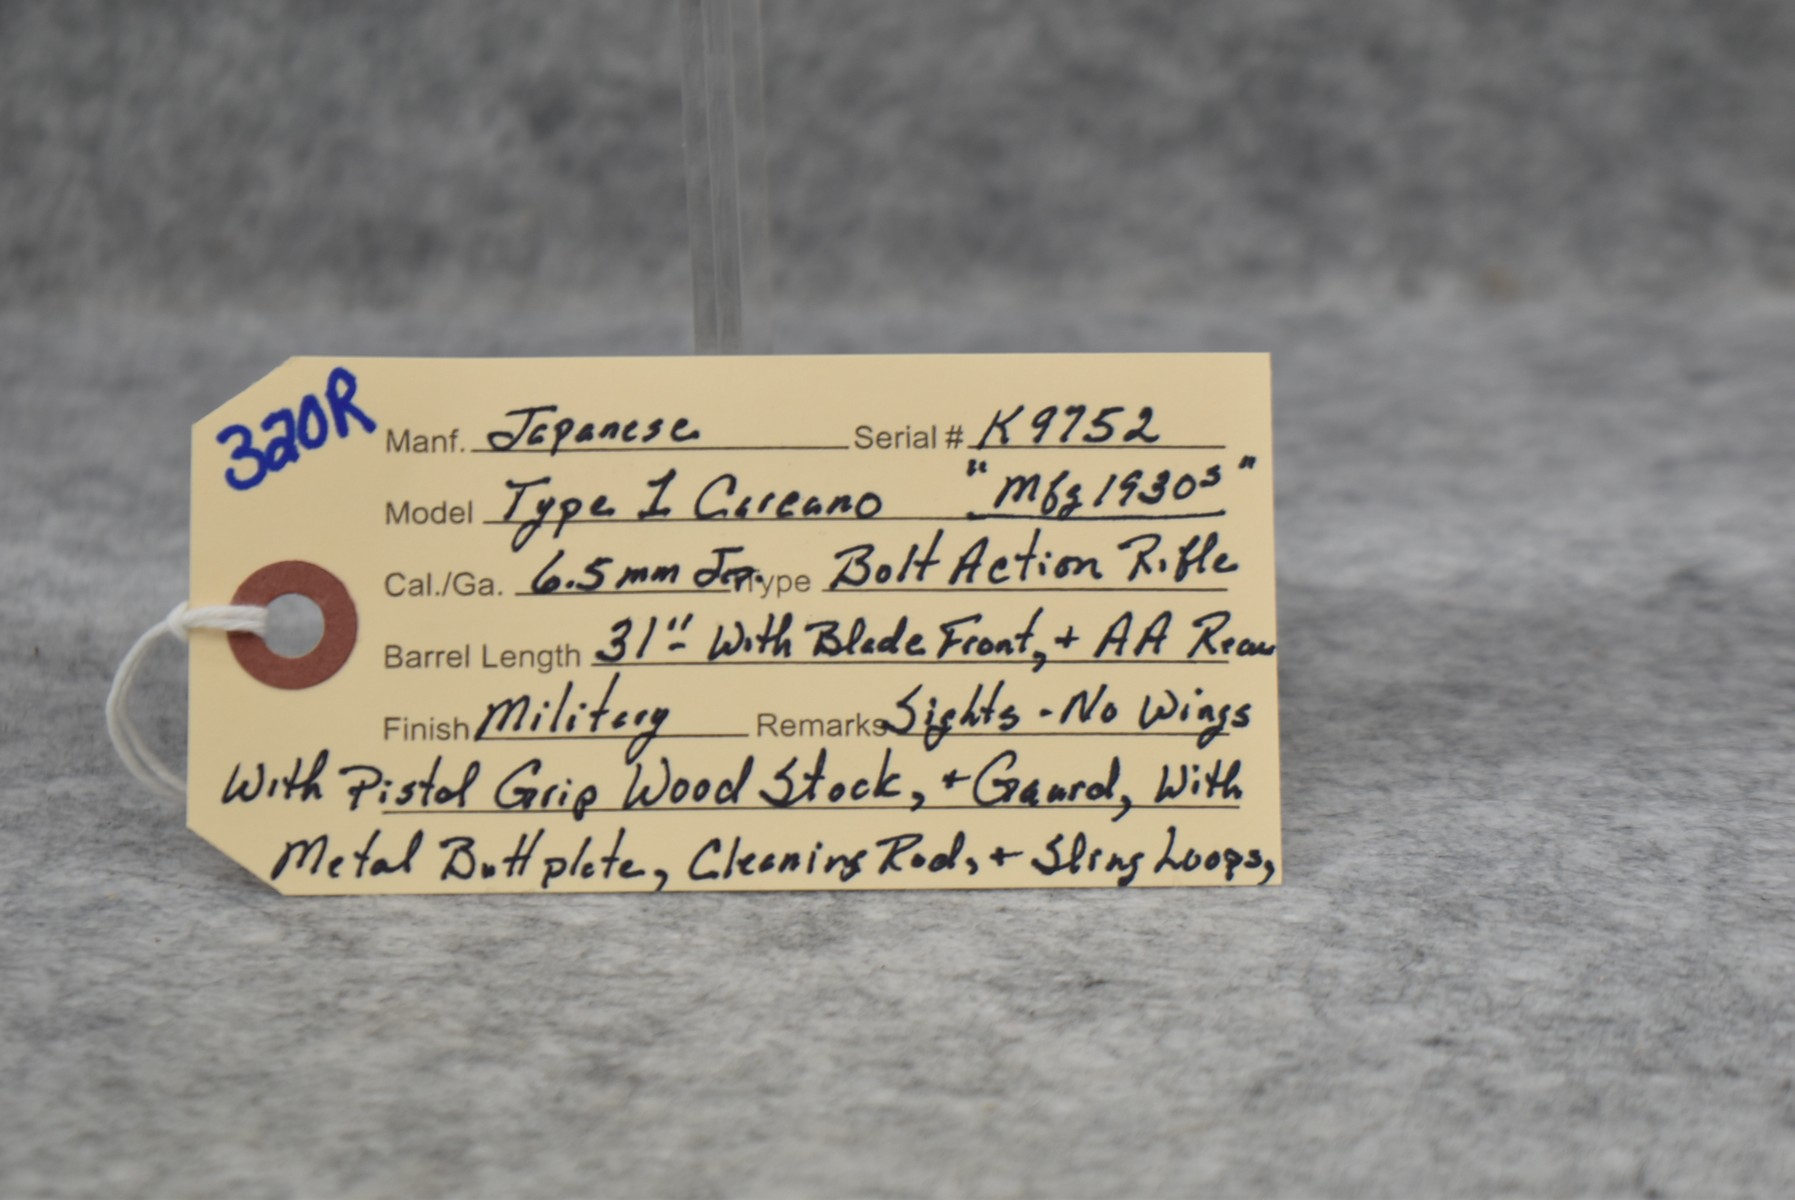 320R
Manf. Japanese Serial # K9752
Model Type I Carcano "Mfg 1930s"
Cal./Ga. 6.5mm Jap. Type Bolt Action Rifle
Barrel Length 31" - With Blade Front, + AA Rear
Finish Military Remarks Sights - No Wings
With Pistol Grip Wood Stock, + Gaurd, With
Metal Buttplate, Cleaning Rod, + Sling Loops,